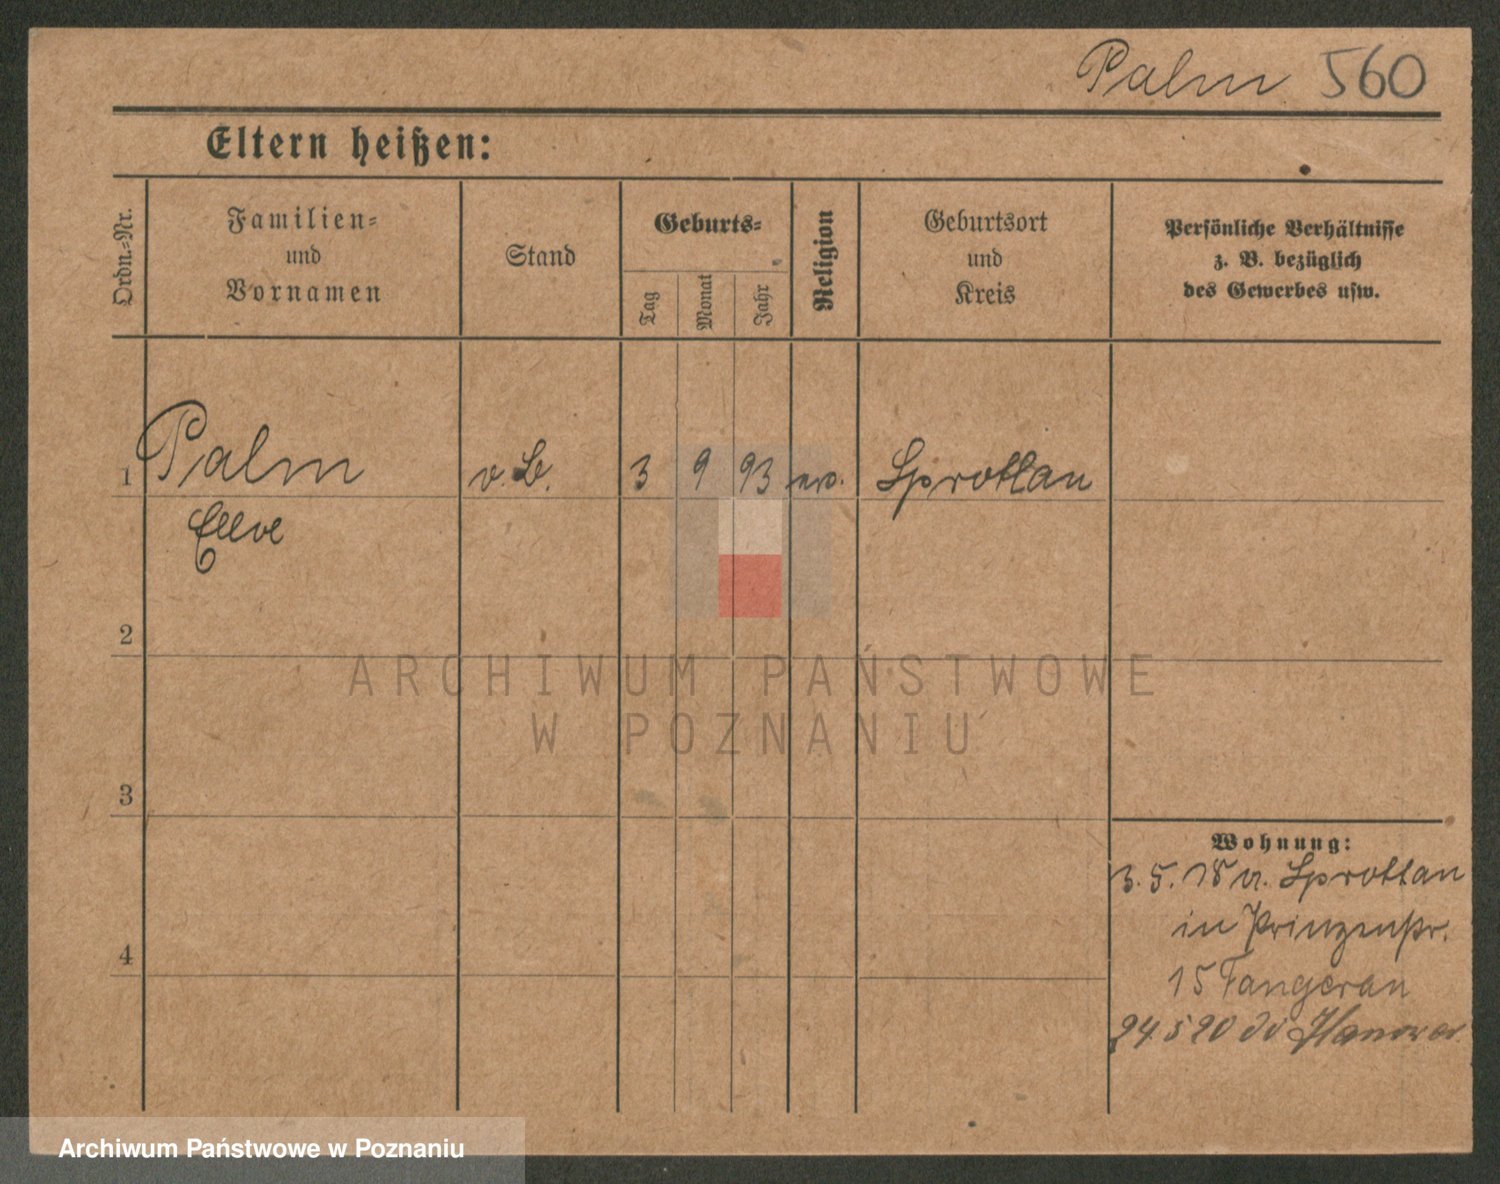 Palm 560
Eltern heißen:
Ordn.-Nr.
Familien-
und
Vornamen
Stand
Geburts-
Tag
Monat
Jahr
Religion
Geburtsort
und
Kreis
Persönliche Verhältnisse
z. B. bezüglich
des Gewerbes usw.
1 Palm 3 9 93 ev. Sprottau
2
3
4
Wohnung:
3.5.18 v. Sprottau
in Prinzenstr.
15
24 5 20
ARCHIWUM PAŃSTWOWE
W POZNANIU
Archiwum Państwowe w Poznaniu